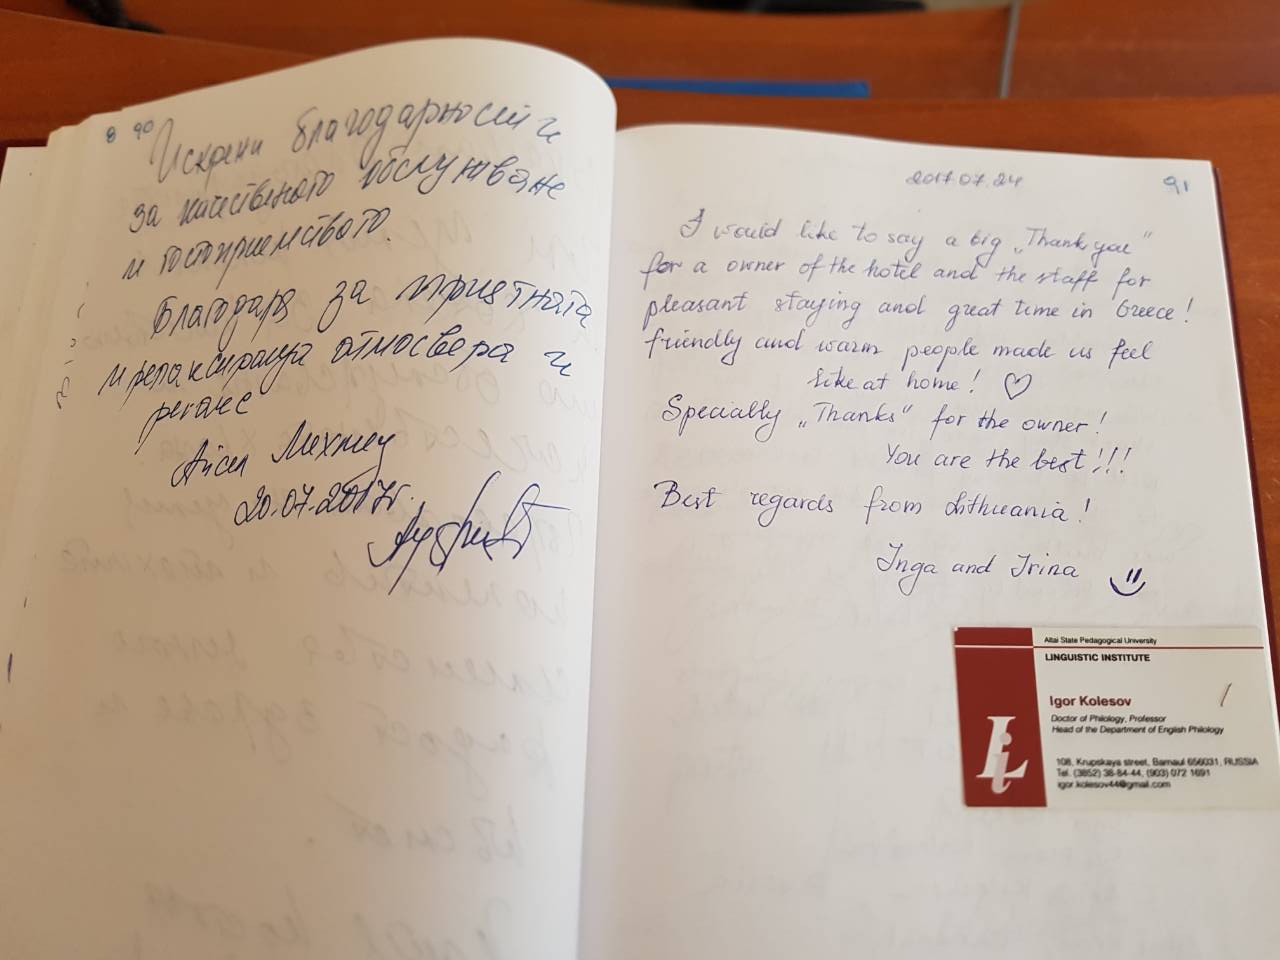 90
Искрени благодарности
за качественото обслужване
и гостоприемството.
Благодаря за приятната
и релаксираща атмосвера и
Айсел Мехмед
20.07.2017г.
2017.07.24
91
I would like to say a big „Thank you"
for a owner of the hotel and the staff for
pleasant staying and great time in Greece!
friendly and warm people made us feel
like at home! ♡
Specially „Thanks" for the owner!
You are the best!!!
Best regards from Lithuania!
Inga and Irina
Altai State Pedagogical University
LINGUISTIC INSTITUTE
Igor Kolesov
Doctor of Philology, Professor
Head of the Department of English Philology
108, Krupskaya street, Barnaul 656031, RUSSIA
Tel. (3852) 38-84-44, (903) 072 1691
igor.kolesov44@gmail.com